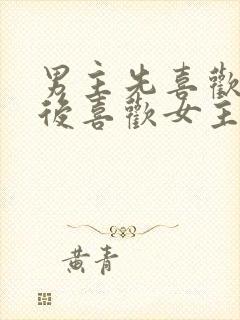 男主先喜歡
後喜歡女主
黃青